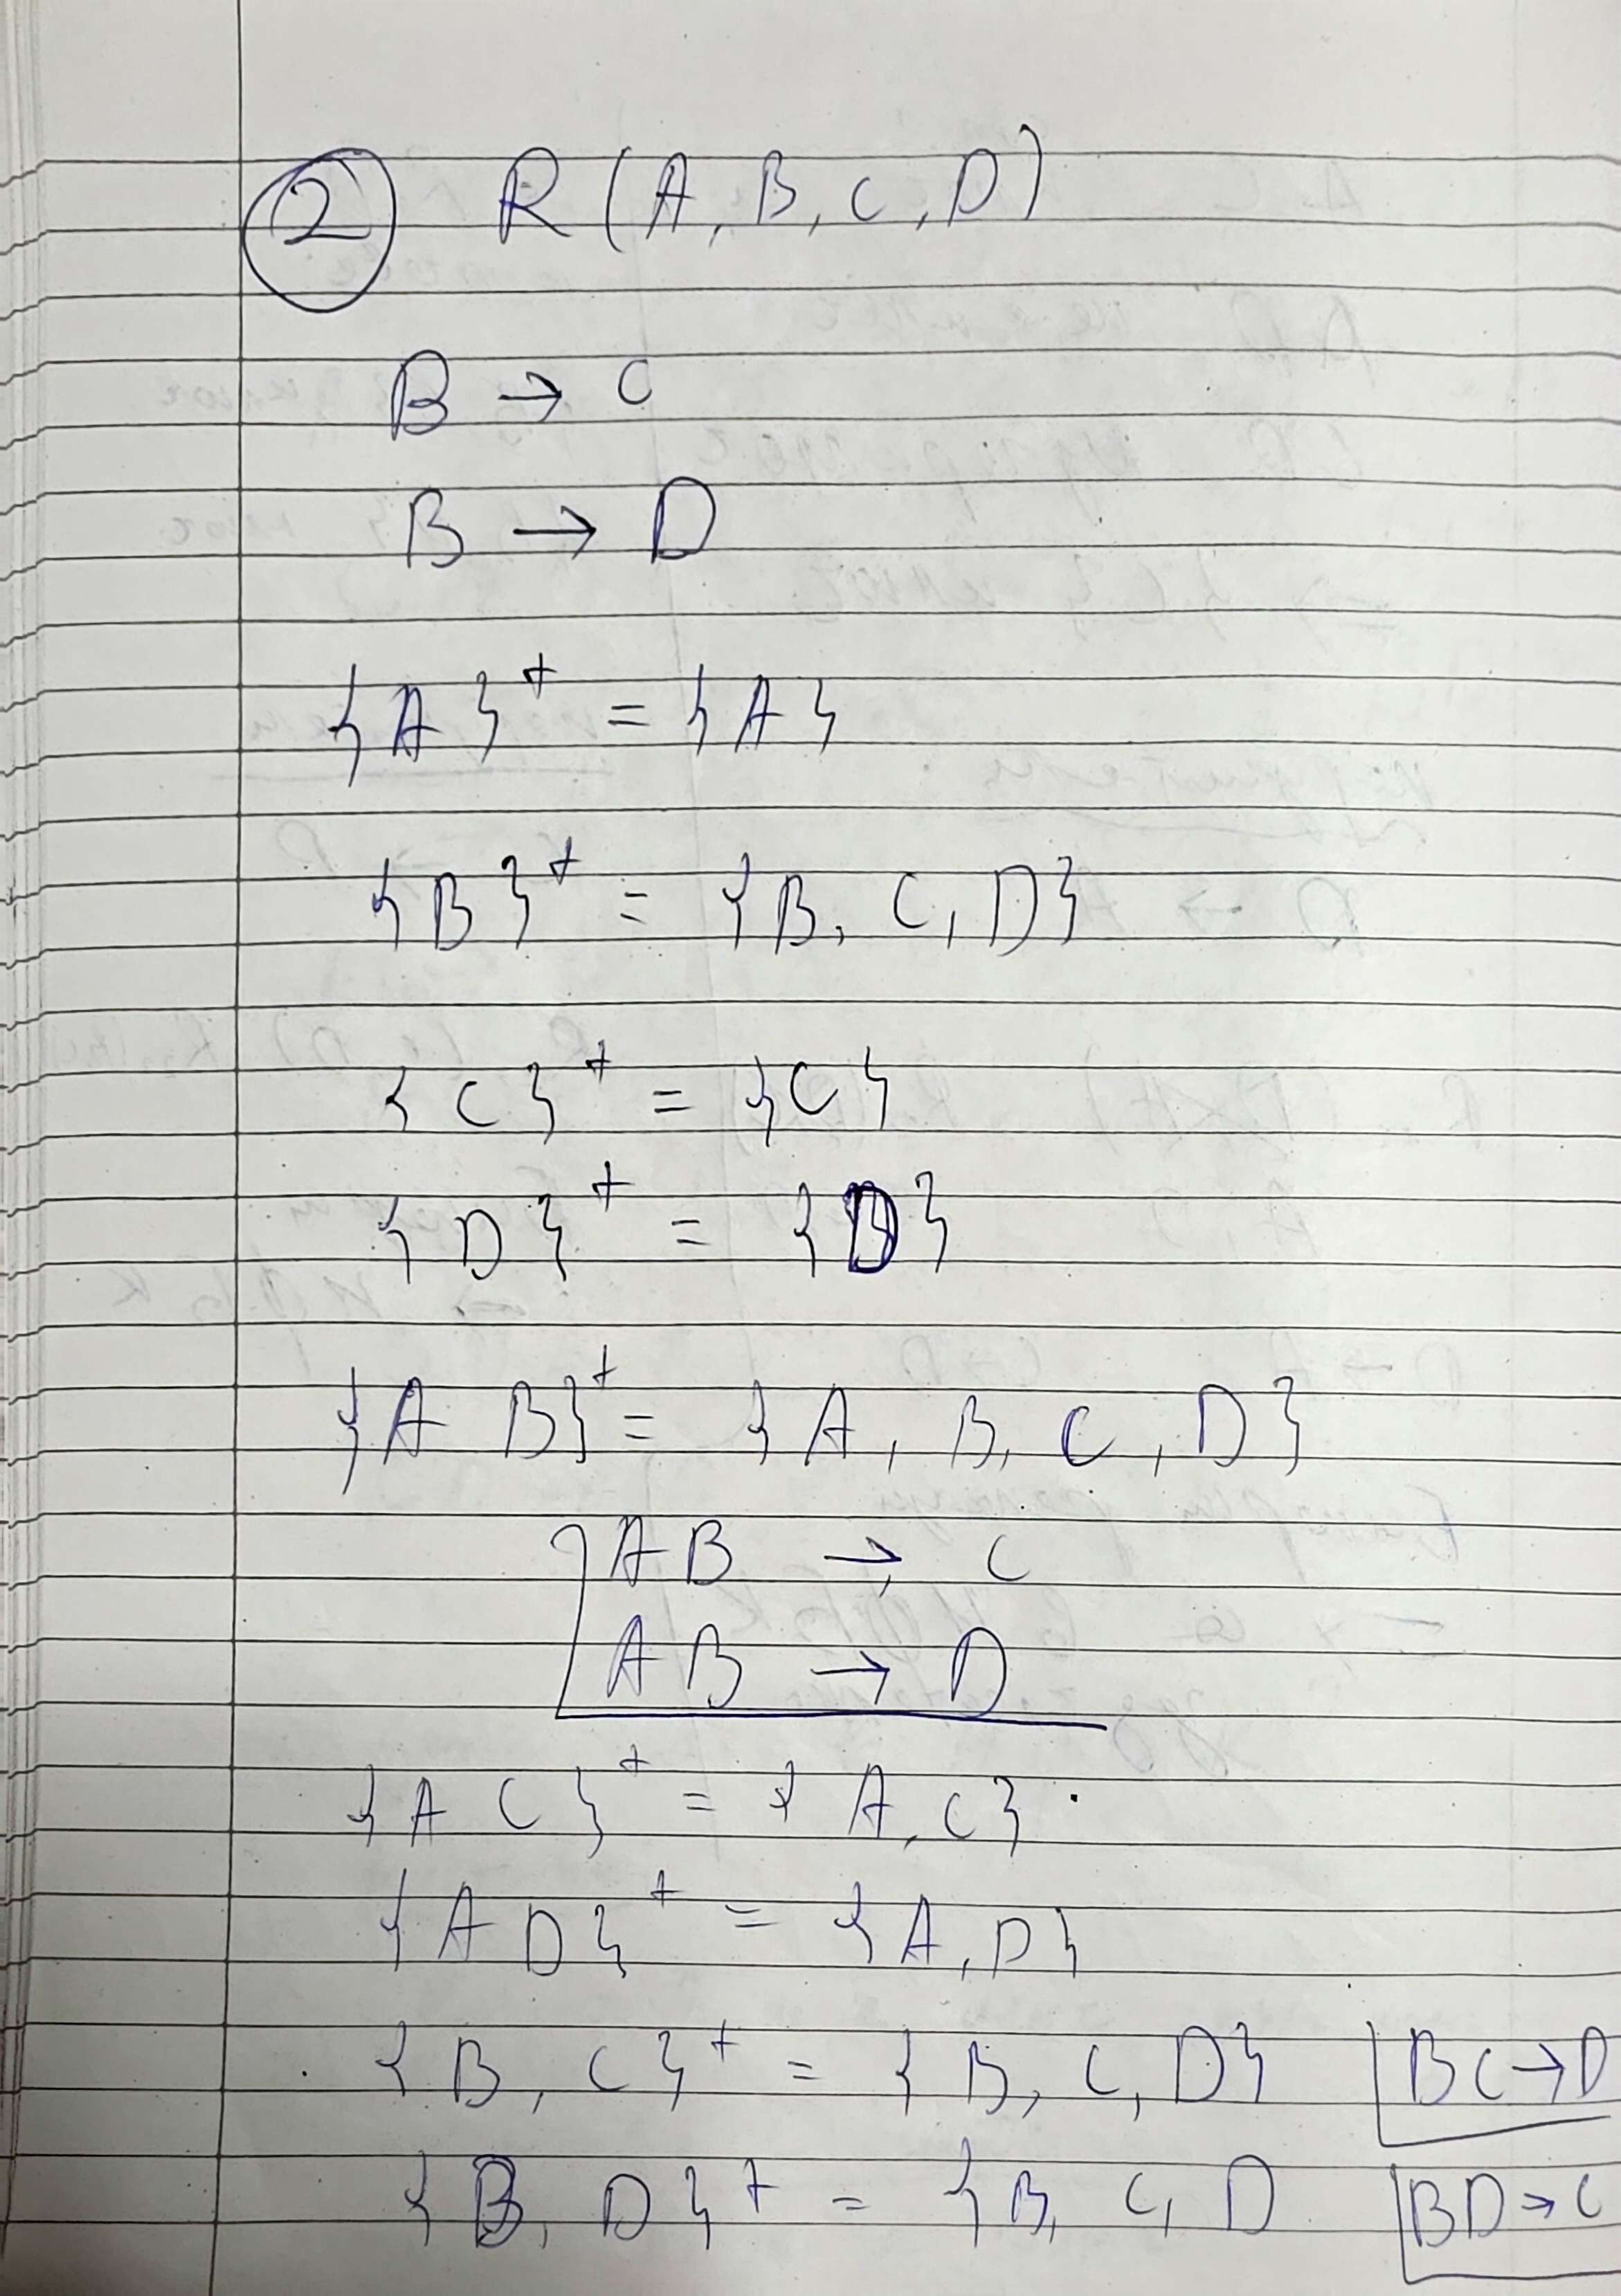 2 R (A, B, C, D)
B → C
B → D
{A}+ = {A}
{B}+ = {B, C, D}
{C}+ = {C}
{D}+ = {D}
{A B}+ = {A, B, C, D}
AB → C
AB → D
{A C}+ = {A, C}.
{A D}+ = {A, D}
{B, C}+ = {B, C, D} BC → D
{B, D}+ = {B, C, D BD → C